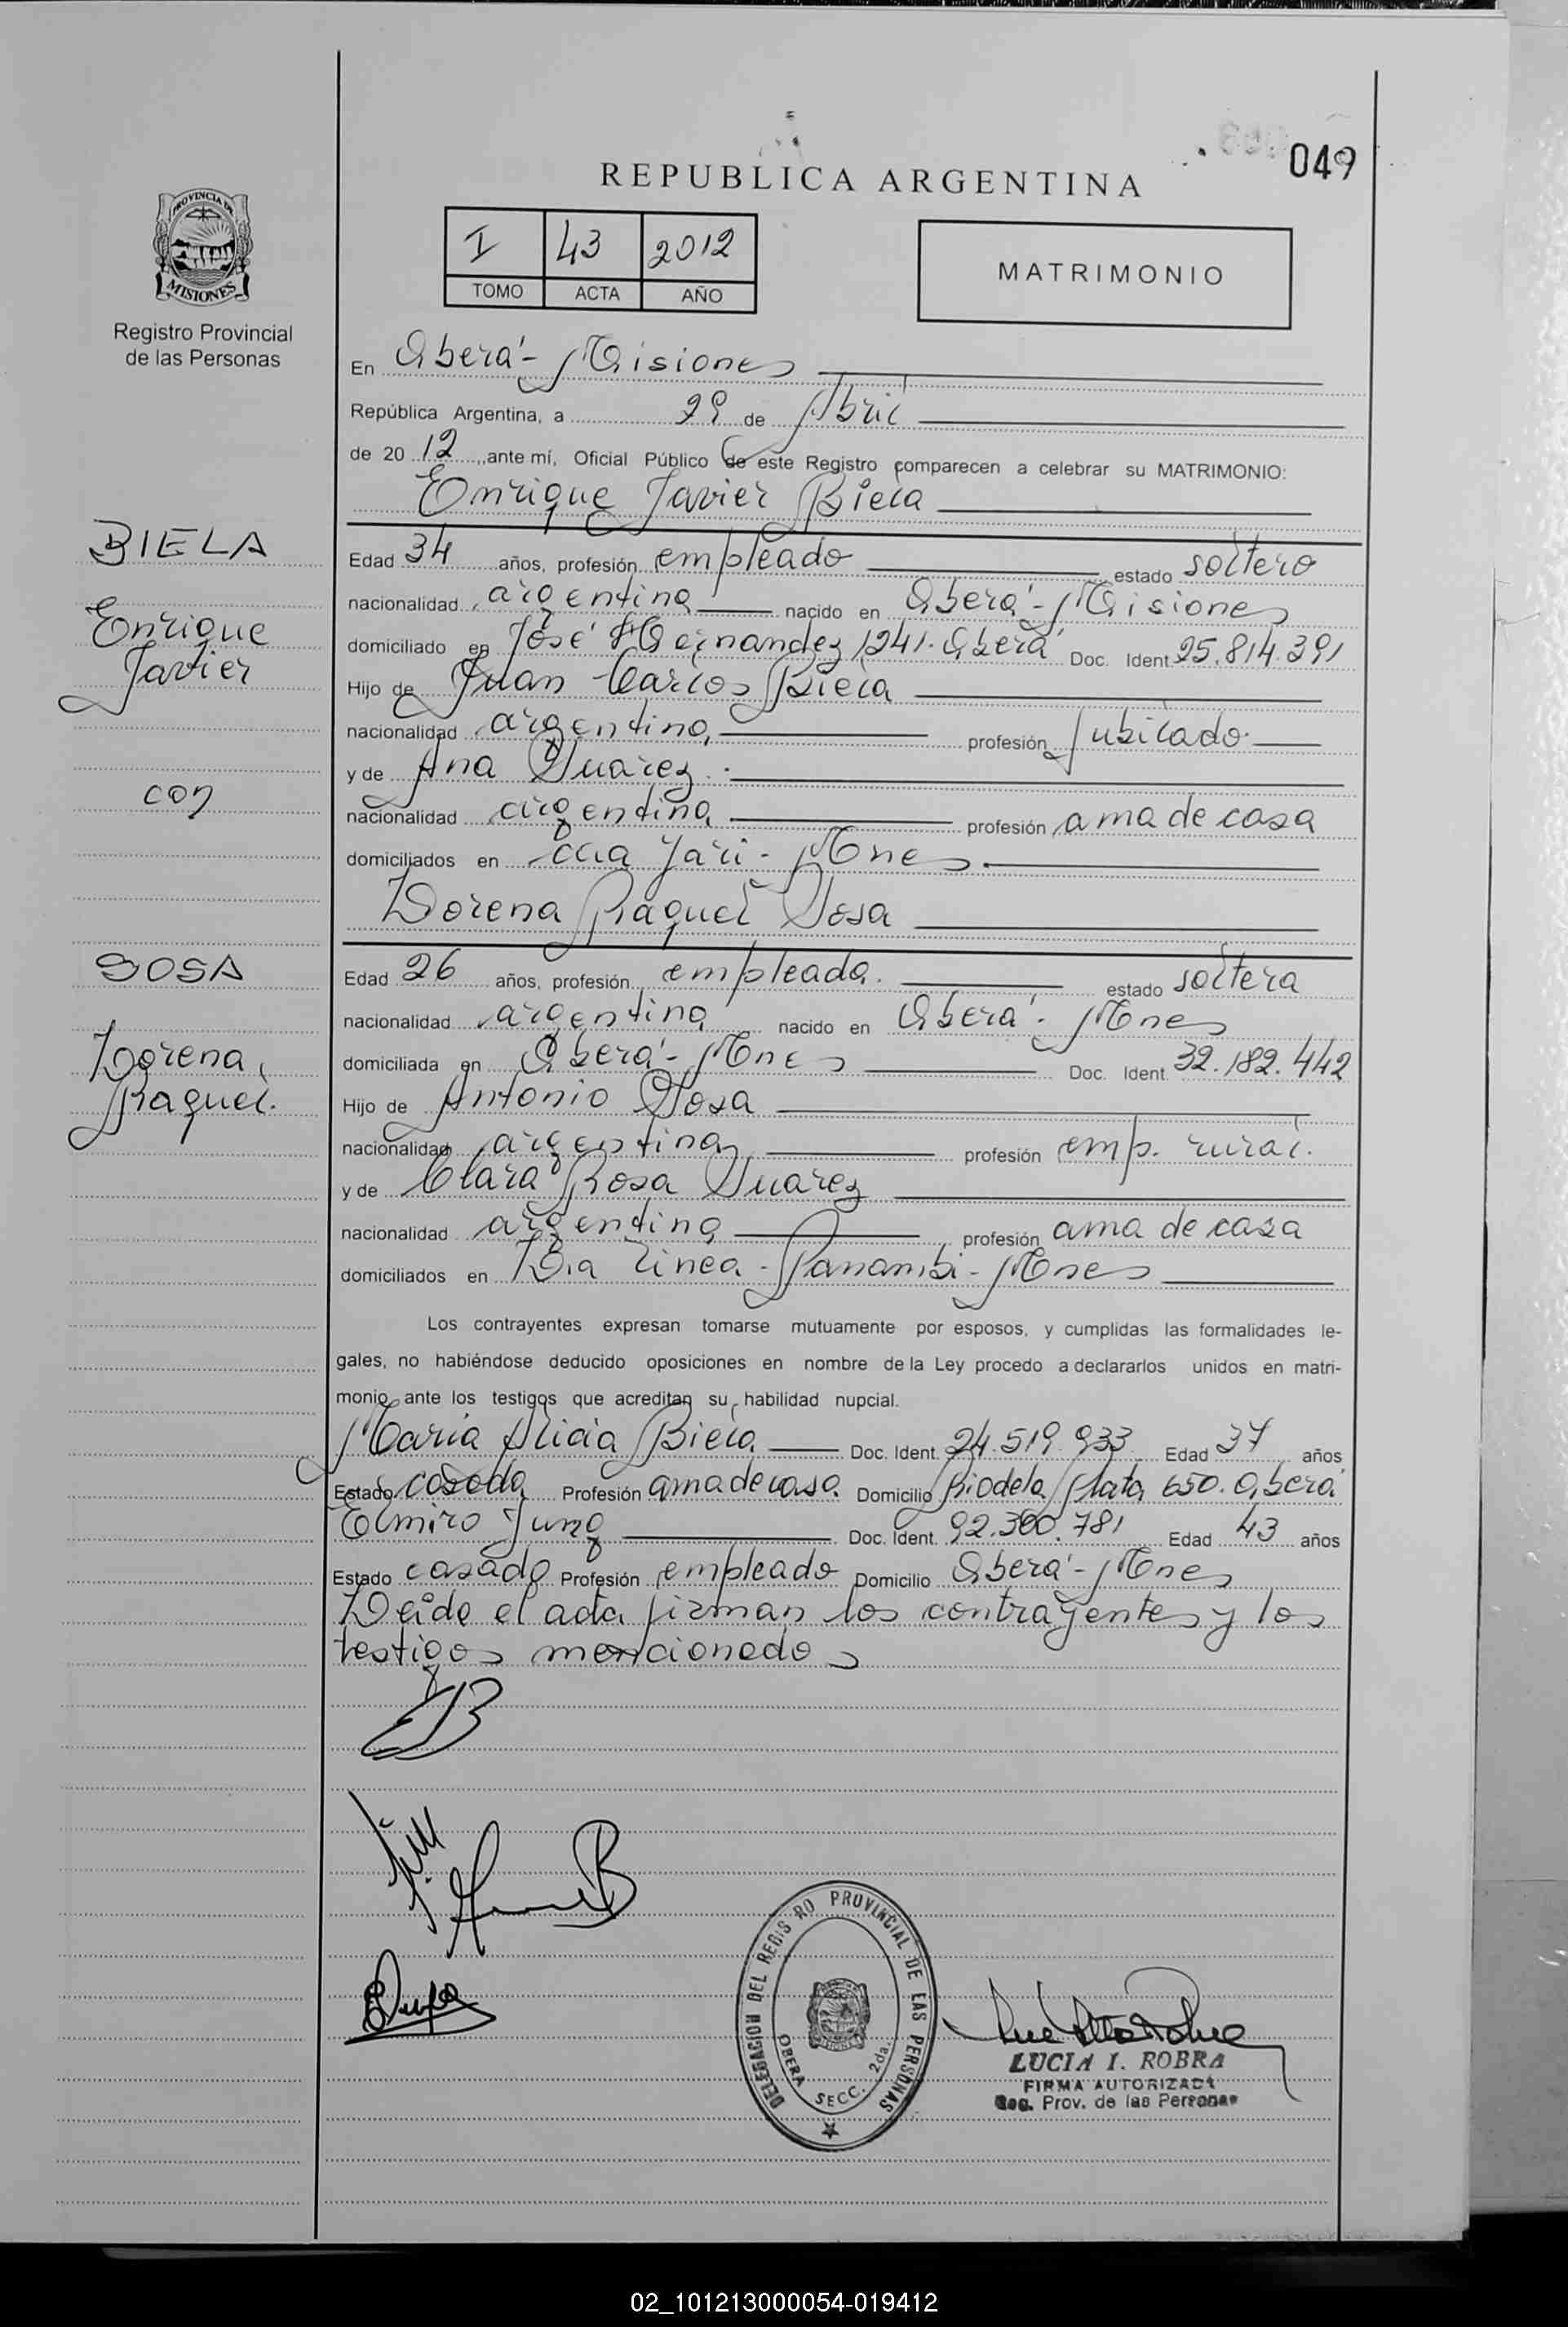 049
REPUBLICA ARGENTINA
PROVINCIA DE
MISIONES
Registro Provincial
de las Personas
I 43 2012
TOMO ACTA AÑO
MATRIMONIO
En Oberá - Misiones
República Argentina, a 29 de Abril
de 20 12 ,ante mí, Oficial Público de este Registro comparecen a celebrar su MATRIMONIO:
Enrique Javier Biela
BIELA
Enrique
Javier
con
SOSA
Lorena
Raquel.
Edad 34 años, profesión empleado estado soltero
nacionalidad argentina nacido en Oberá - Misiones
domiciliado en José Hernandez 1241. Oberá Doc. Ident 25.814.391
Hijo de Juan Carlos Biela
nacionalidad argentina profesión Jubilado
y de Ana Suarez.
nacionalidad argentina profesión ama de casa
domiciliados en Yari - Mnes.
Lorena Raquel Sosa
Edad 26 años, profesión empleada. estado soltera
nacionalidad argentina nacido en Oberá - Mnes
domiciliada en Oberá - Mnes Doc. Ident. 32.182.442
Hijo de Antonio Sosa
nacionalidad argentina profesión emp. rural.
y de Clara Rosa Suarez
nacionalidad argentina profesión ama de casa
domiciliados en Linea - Panambi - Mnes
Los contrayentes expresan tomarse mutuamente por esposos, y cumplidas las formalidades le-
gales, no habiéndose deducido oposiciones en nombre de la Ley procedo a declararlos unidos en matri-
monio ante los testigos que acreditan su habilidad nupcial.
Maria Alicia Biela Doc. Ident. 24.519.933 Edad 37 años
Estado casada Profesión ama de casa Domicilio Rio de la Plata 650. Oberá
Elmiro Jung Doc. Ident. 92.300.781 Edad 43 años
Estado casado Profesión empleado Domicilio Oberá - Mnes
Leida el acta firman los contrayentes y los
testigos mencionados
DELEGACION DEL REGISTRO PROVINCIAL DE LAS PERSONAS
OBERA SECC. 2da.
LUCIA I. ROBRA
FIRMA AUTORIZADA
Reg. Prov. de las Personas
02_101213000054-019412